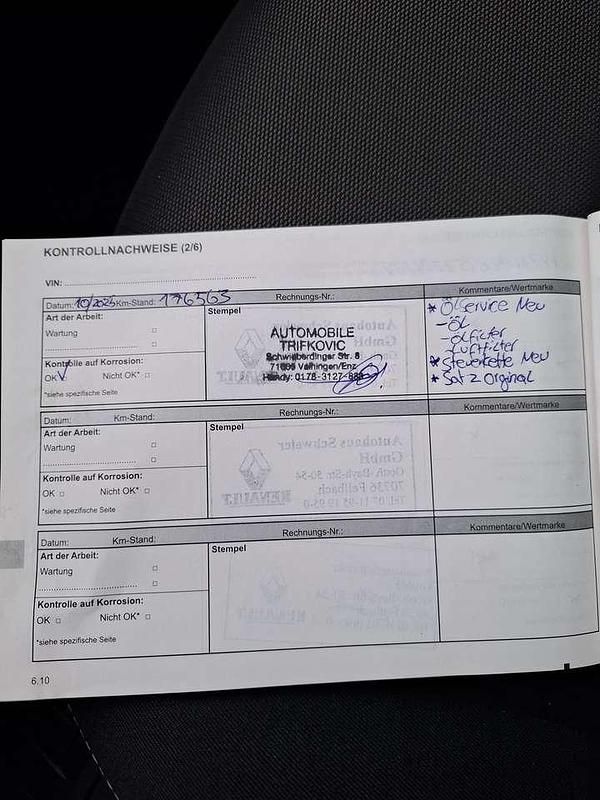 KONTROLLNACHWEISE (2/6)
VIN:
Datum: 10/2025 Km-Stand: 176563 Rechnungs-Nr.: Kommentare/Wertmarke
Art der Arbeit:
Wartung
Kontrolle auf Korrosion:
OK Nicht OK*
*siehe spezifische Seite
Stempel
AUTOMOBILE
TRIFKOVIC
Schwieberdinger Str. 8
Vaihingen/Enz
Handy: 0176-3127-
* Ölservice Neu
- Öl
- Ölfilter
- Luftfilter
* Steuerkette Neu
* Satz Orginal
Datum: Km-Stand: Rechnungs-Nr.: Kommentare/Wertmarke
Art der Arbeit:
Wartung
Kontrolle auf Korrosion:
OK Nicht OK*
*siehe spezifische Seite
Stempel
Autohaus Schweter
GmbH
70736 Fellbach
RENAULT
Datum: Km-Stand: Rechnungs-Nr.: Kommentare/Wertmarke
Art der Arbeit:
Wartung
Kontrolle auf Korrosion:
OK Nicht OK*
*siehe spezifische Seite
Stempel
6.10